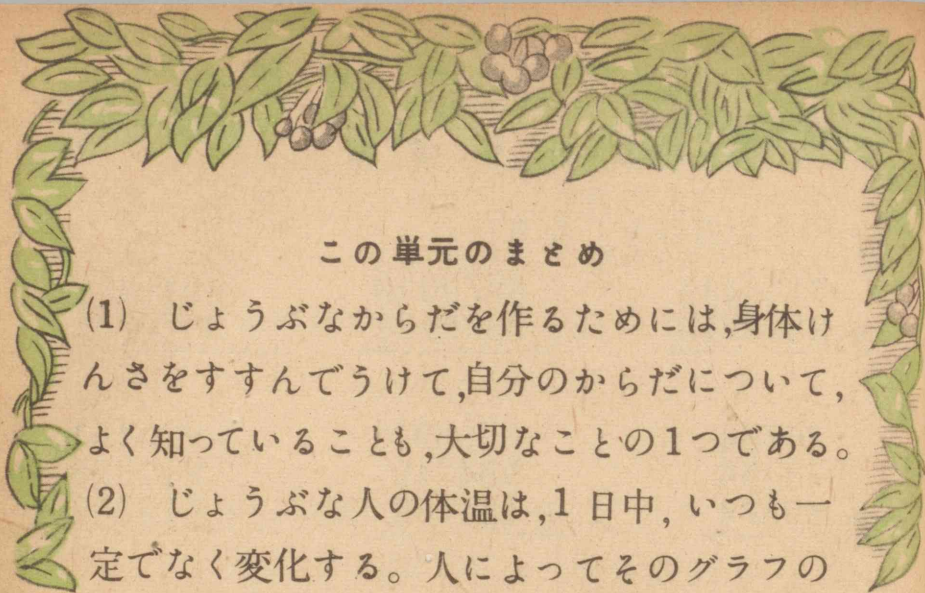 この単元のまとめ
(1) じょうぶなからだを作るためには,身体け
んさをすすんでうけて,自分のからだについて,
よく知っていることも,大切なことの1つである。
(2) じょうぶな人の体温は,1日中,いつも一
定でなく変化する。人によってそのグラフの